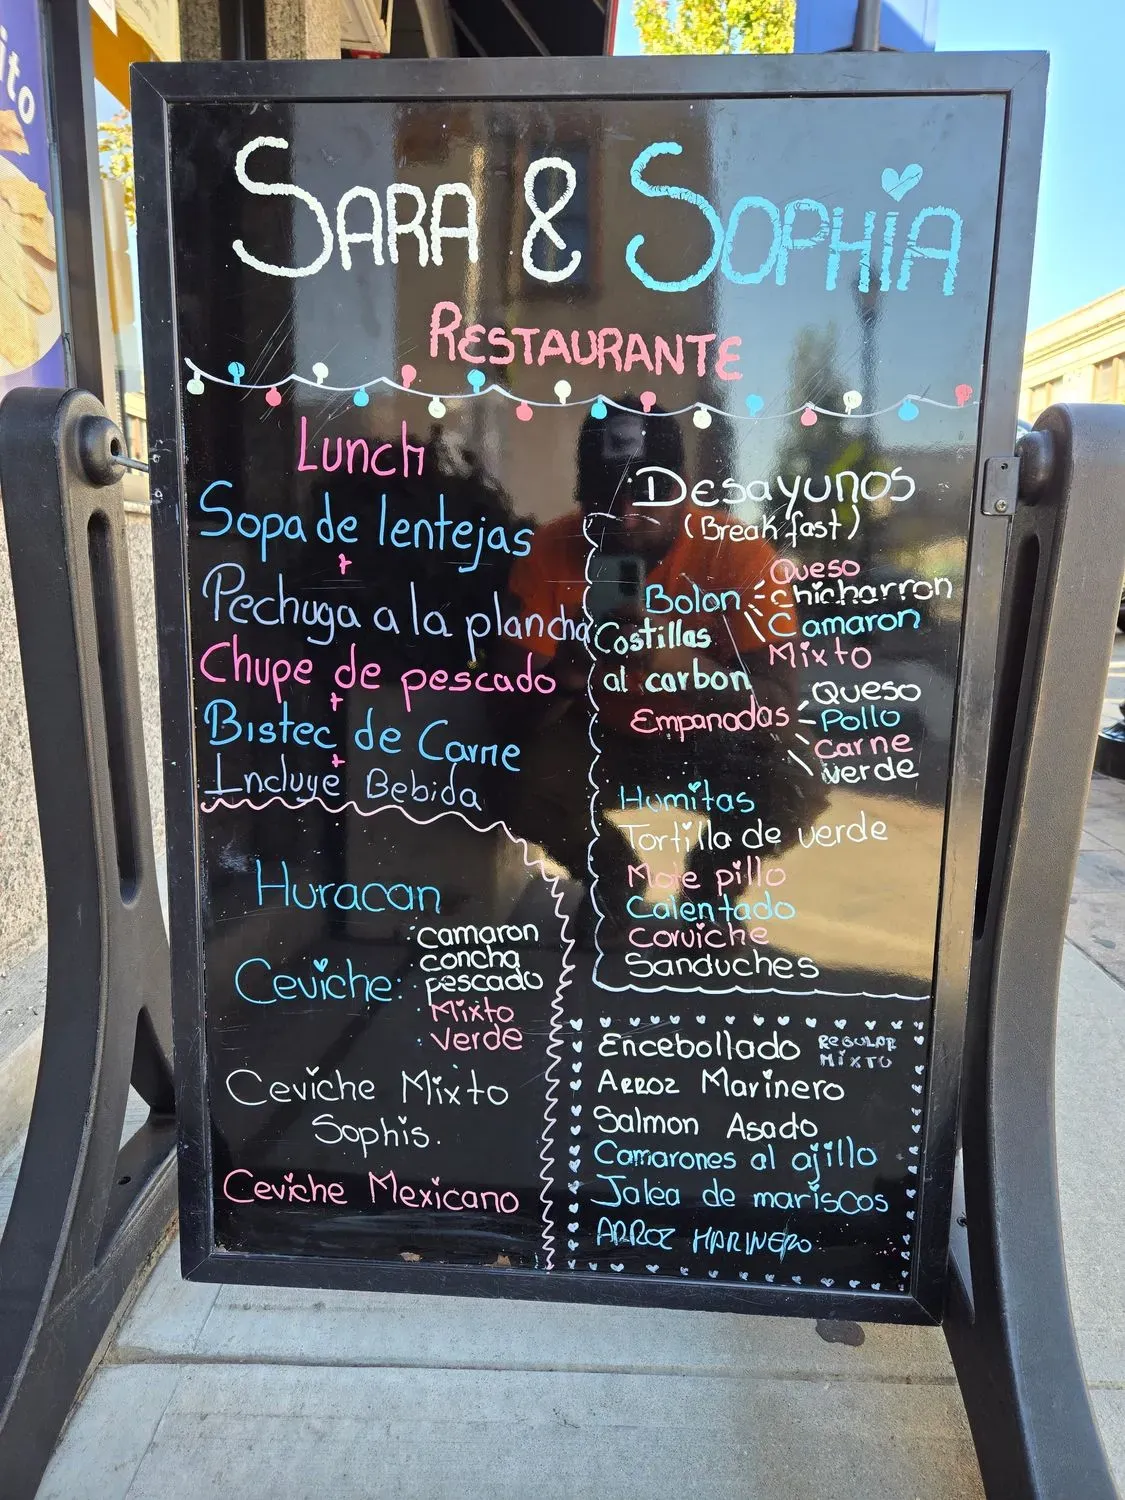 ito
SARA & SOPHIA
RESTAURANTE
Lunch
Sopa de lentejas
+
Pechuga a la plancha
Chupe de pescado
+
Bistec de Carne
+
Incluye Bebida
Huracan
Ceviche:
· camaron
concha
· pescado
· Mixto
· Verde
Ceviche Mixto
Sophis.
Ceviche Mexicano
Desayunos
(Break fast)
Bolon
Queso
Chicharron
Camaron
Mixto
Costillas
al carbon
Empanadas
Queso
Pollo
Carne
Verde
Humitas
Tortilla de verde
Mote pillo
Calentado
Corviche
Sanduches
Encebollado REGULAR
MIXTO
ARROZ Marinero
Salmon Asado
Camarones al ajillo
Jalea de mariscos
ARROZ MARINERO